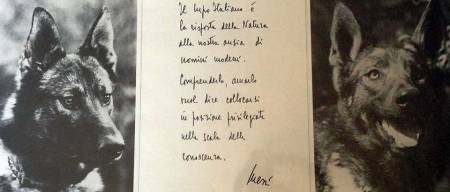 Il Lupo Italiano è
la risposta della Natura
alla nostra ansia di
uomini moderni.
Comprenderlo, amarlo
vuol dire collocarsi
in posizione privilegiata
nella scala della
conoscenza.